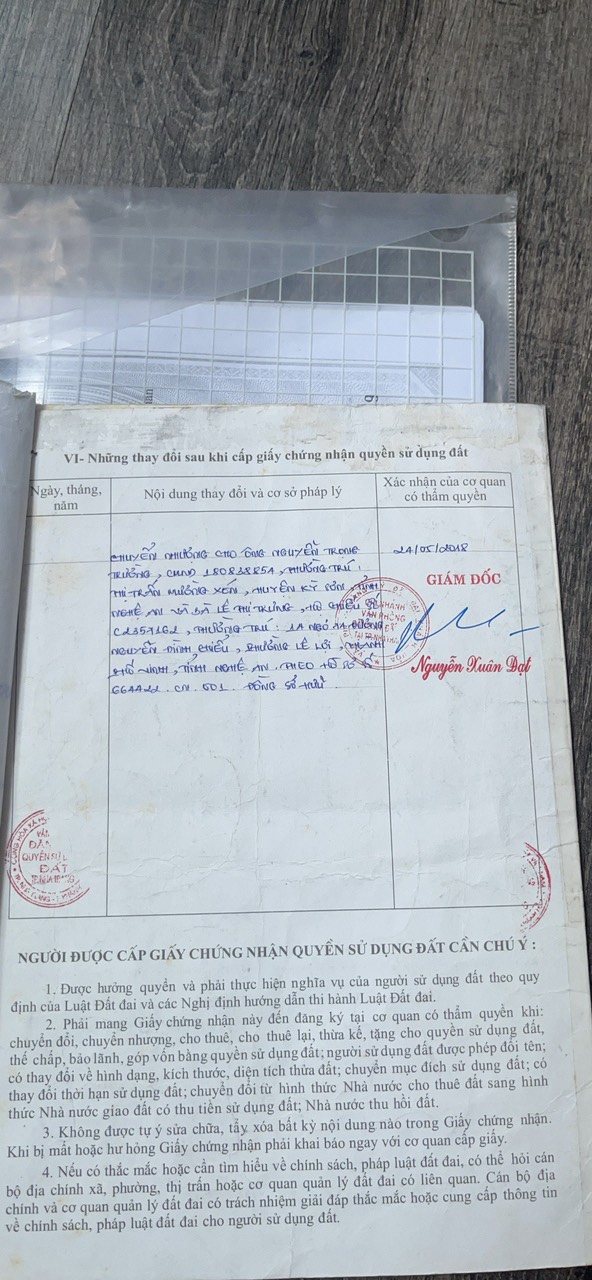 VI- Những thay đổi sau khi cấp giấy chứng nhận quyền sử dụng đất
Ngày, tháng, năm
Nội dung thay đổi và cơ sở pháp lý
Xác nhận của cơ quan có thẩm quyền
CHUYỂN NHƯỢNG CHO ÔNG NGUYỄN TRỌNG
TRƯỜNG, CMND 180838854, THƯỜNG TRÚ:
THỊ TRẤN MƯỜNG XÉN, HUYỆN KỲ SƠN, TỈNH
NGHỆ AN VÀ BÀ LÊ THỊ TRƯNG, HỘ CHIẾU SỐ
C2357162, THƯỜNG TRÚ: 1A NGÕ ĐƯỜNG
NGUYỄN ĐÌNH CHIỂU, PHƯỜNG LÊ LỢI, THÀNH
PHỐ VINH, TỈNH NGHỆ AN. THEO HỒ SƠ SỐ
CN. 001. ĐỒNG SỞ HỮU
24/05/2018
GIÁM ĐỐC
Nguyễn Xuân Đạt
NGƯỜI ĐƯỢC CẤP GIẤY CHỨNG NHẬN QUYỀN SỬ DỤNG ĐẤT CẦN CHÚ Ý :
1. Được hưởng quyền và phải thực hiện nghĩa vụ của người sử dụng đất theo quy
định của Luật Đất đai và các Nghị định hướng dẫn thi hành Luật Đất đai.
2. Phải mang Giấy chứng nhận này đến đăng ký tại cơ quan có thẩm quyền khi:
chuyển đổi, chuyển nhượng, cho thuê, cho thuê lại, thừa kế, tặng cho quyền sử dụng đất,
thế chấp, bảo lãnh, góp vốn bằng quyền sử dụng đất; người sử dụng đất được phép đổi tên;
có thay đổi về hình dạng, kích thước, diện tích thửa đất; chuyển mục đích sử dụng đất; có
thay đổi thời hạn sử dụng đất; chuyển đổi từ hình thức Nhà nước cho thuê đất sang hình
thức Nhà nước giao đất có thu tiền sử dụng đất; Nhà nước thu hồi đất.
3. Không được tự ý sửa chữa, tẩy xóa bất kỳ nội dung nào trong Giấy chứng nhận.
Khi bị mất hoặc hư hỏng Giấy chứng nhận phải khai báo ngay với cơ quan cấp giấy.
4. Nếu có thắc mắc hoặc cần tìm hiểu về chính sách, pháp luật đất đai, có thể hỏi cán
bộ địa chính xã, phường, thị trấn hoặc cơ quan quản lý đất đai có liên quan. Cán bộ địa
chính và cơ quan quản lý đất đai có trách nhiệm giải đáp thắc mắc hoặc cung cấp thông tin
về chính sách, pháp luật đất đai cho người sử dụng đất.